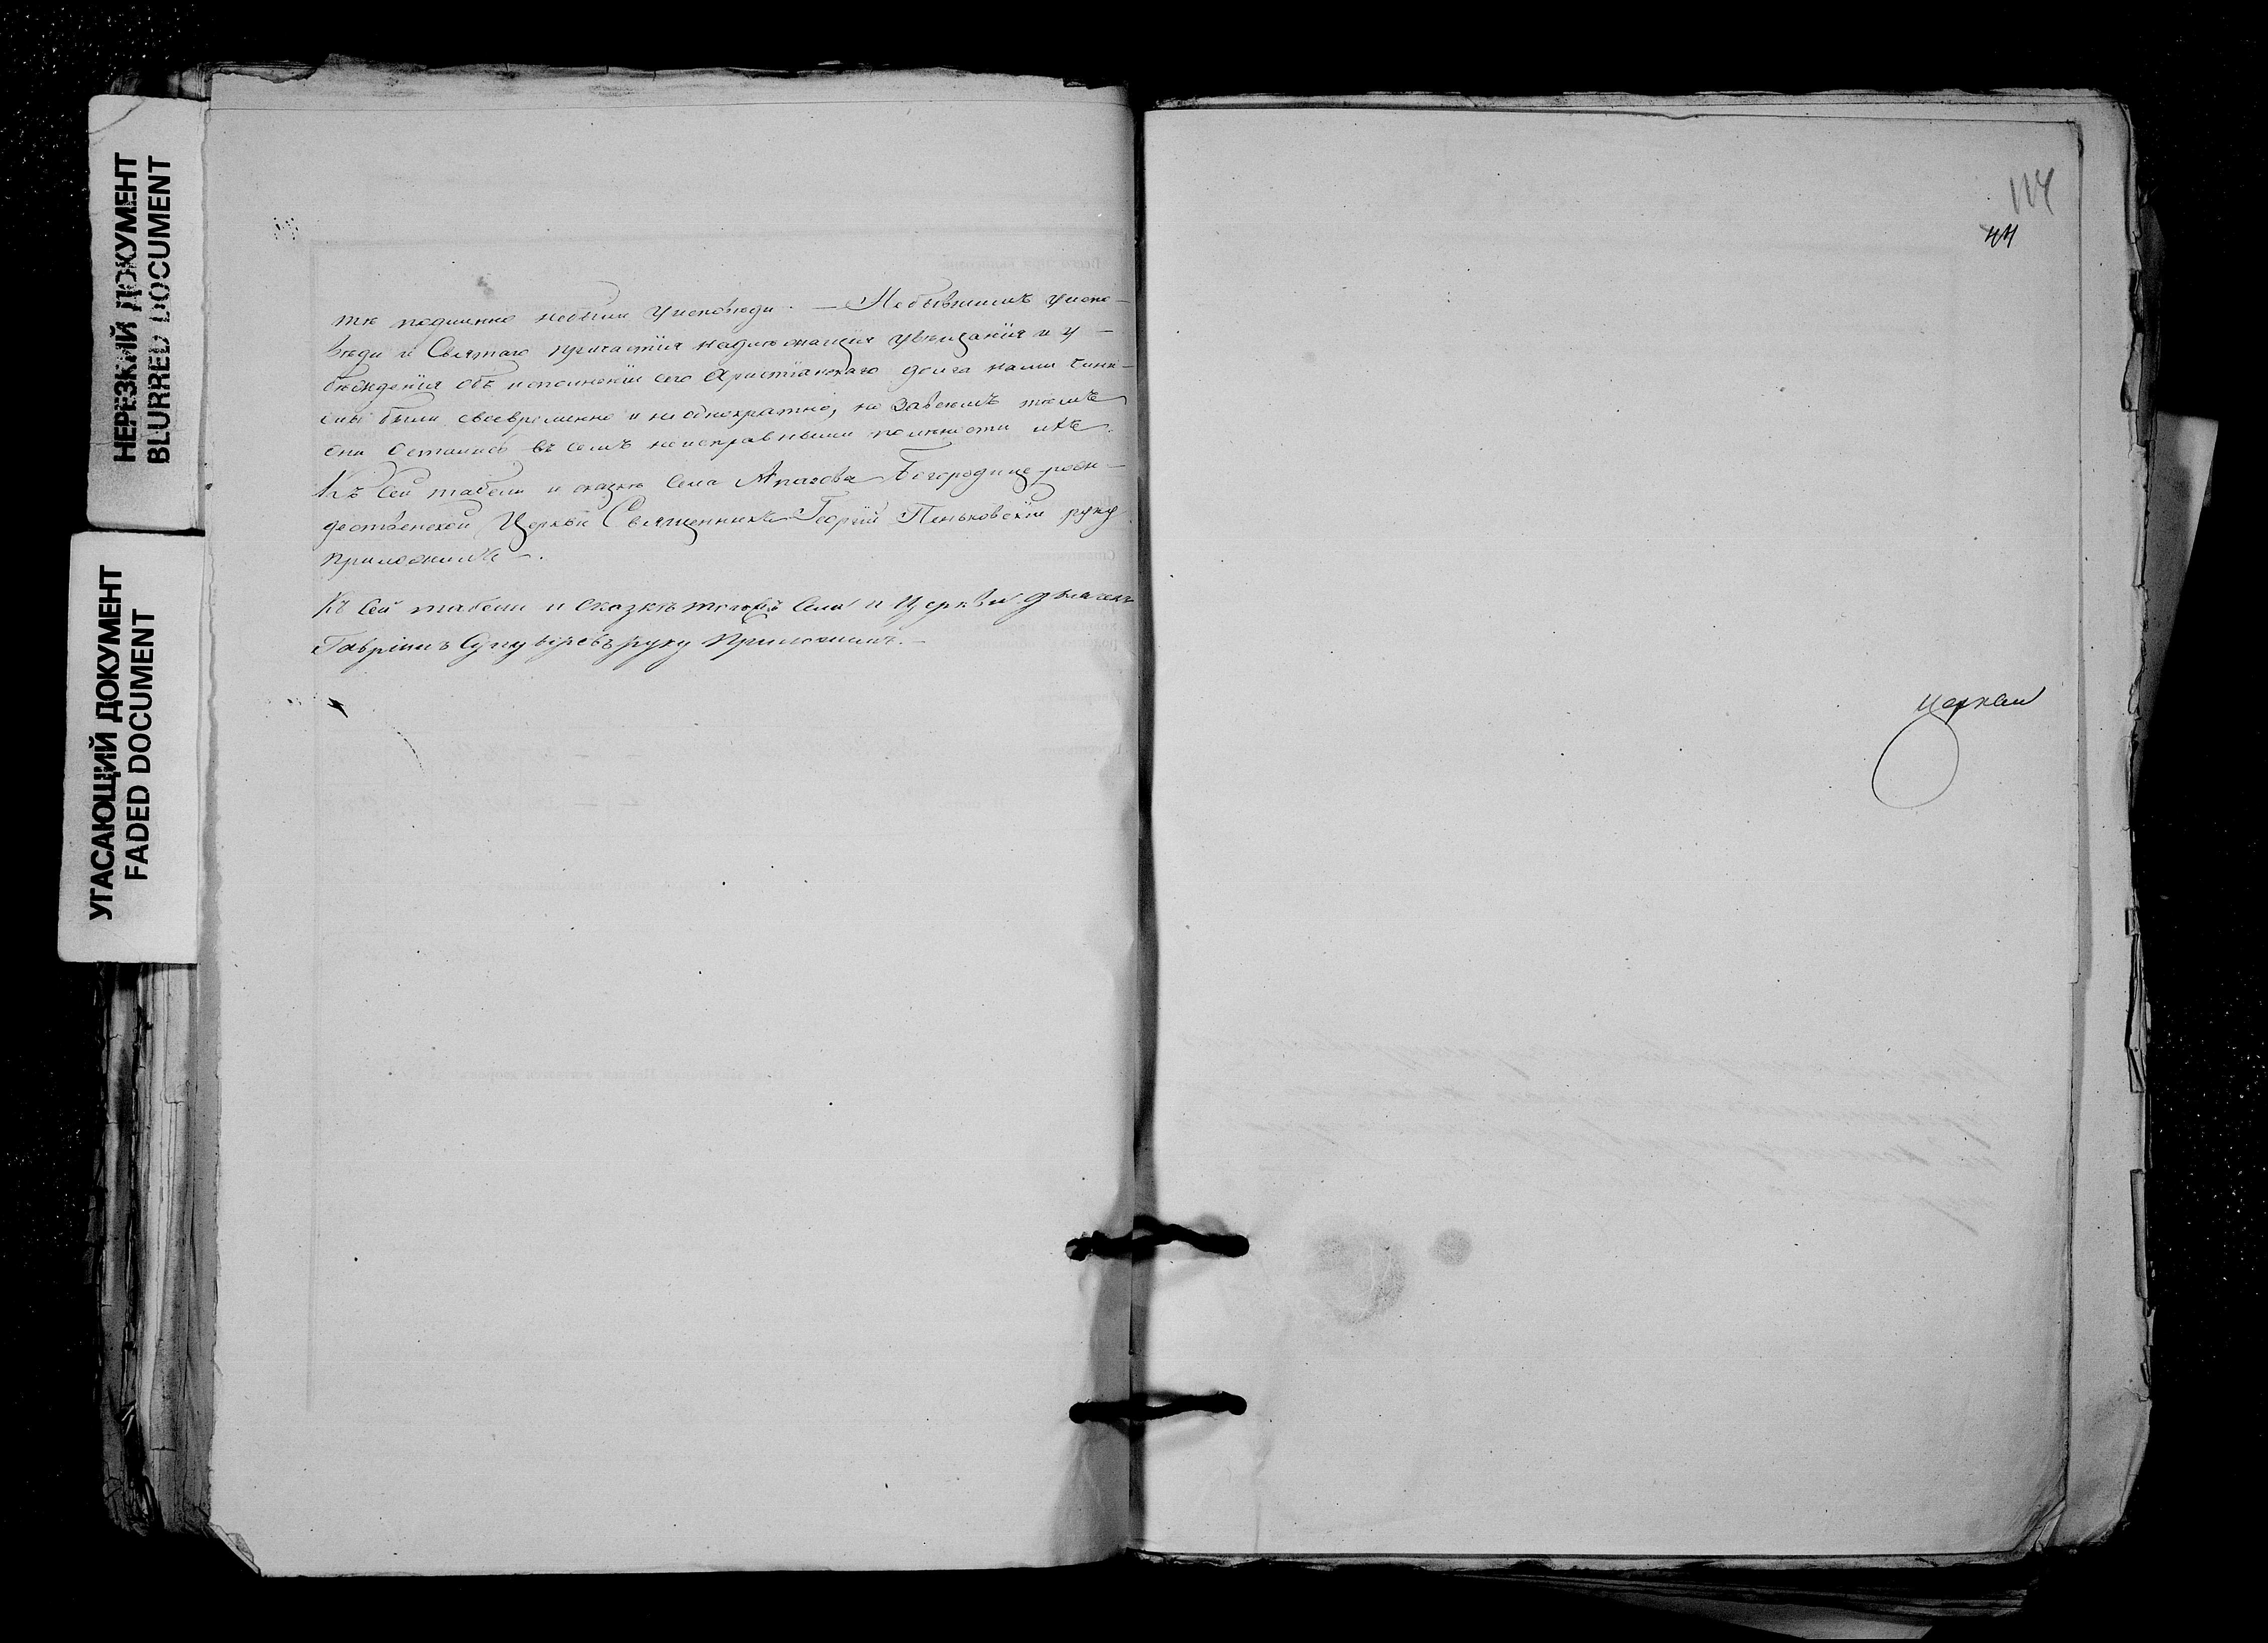 НЕРЕЗКИЙ ДОКУМЕНТ
BLURRED DOCUMENT
УГАСАЮЩИЙ ДОКУМЕНТ
FADED DOCUMENT
тѣ подлинно небыли у исповѣди. — Небывшимъ у испо-
вѣди и Святаго причастія надлежащія увѣщанія и у-
бѣжденія объ исполненіи сего Христіанскаго долга нами чине-
ны были своевременно и неоднократно, но
они остались въ семъ неисправными
Къ сей табели и сказкѣ села Богородице-рож-
дественской Церкви Священникъ Георгій Пеньковскій руку
приложилъ.
Къ сей табели и сказкѣ тогожъ села и Церкви
Гавріилъ руку приложилъ.
114